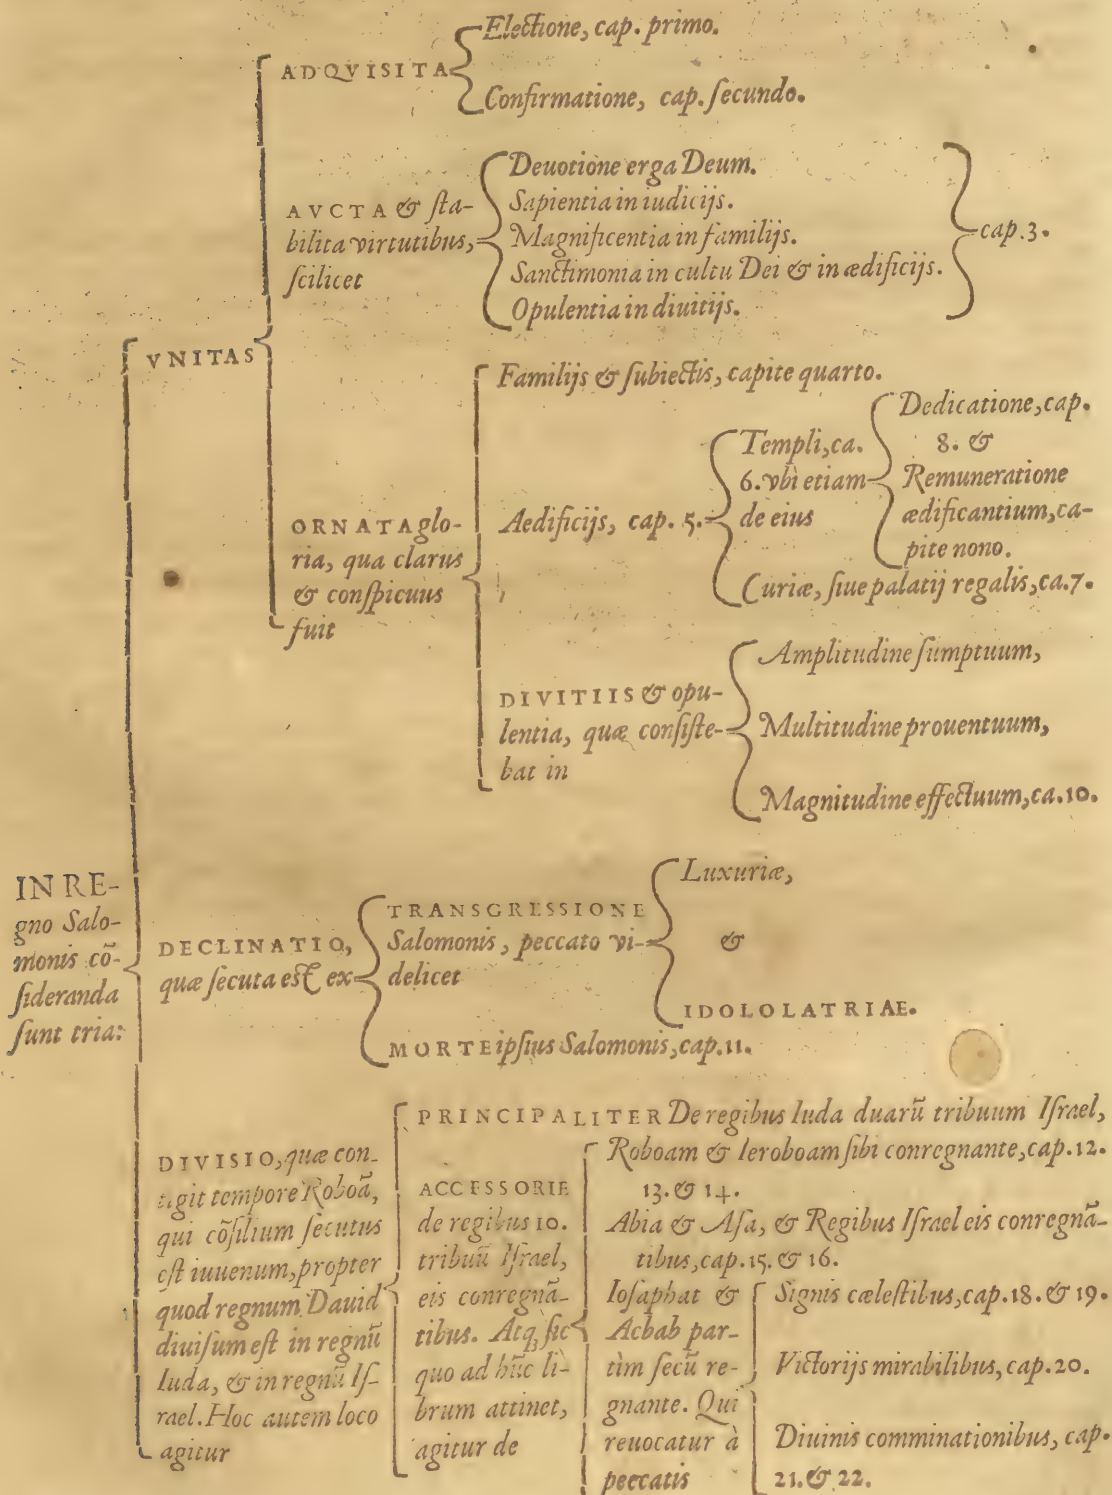 IN RE-
gno Salo-
monis cō-
ſideranda
ſunt tria:
VNITAS
ADQVISITA
Electione, cap. primo.
Confirmatione, cap. ſecundo.
AVCTA & ſta-
bilita virtutibus,
ſcilicet
Deuotione erga Deum.
Sapientia in iudicijs.
Magnificentia in familijs.
Sanctimonia in cultu Dei & in ædificijs.
Opulentia in diuitijs.
cap. 3.
ORNATA glo-
ria, qua clarus
& conſpicuus
fuit
Familijs & ſubiectis, capite quarto.
Aedificijs, cap. 5.
Templi, ca.
6. vbi etiam
de eius
Dedicatione, cap.
8. &
Remuneratione
ædificantium, ca-
pite nono.
Curiæ, ſiue palatij regalis, ca. 7.
DIVITIIS & opu-
lentia, quæ conſiſte-
bat in
Amplitudine ſumptuum,
Multitudine prouentuum,
Magnitudine effectuum, ca. 10.
DECLINATIO,
quæ ſecuta eſt ex
TRANSGRESSIONE
Salomonis, peccato vi-
delicet
Luxuriæ,
&
IDOLOLATRIAE.
MORTE ipſius Salomonis, cap. 11.
DIVISIO, quæ con-
tigit tempore Roboā,
qui cōſilium ſecutus
eſt iuuenum, propter
quod regnum Dauid
diuiſum eſt in regnū
Iuda, & in regnū Iſ-
rael. Hoc autem loco
agitur
PRINCIPALITER De regibus Iuda duarū tribuum Iſrael,
ACCESSORIE
de regibus 10.
tribuū Iſrael,
eis conregnā-
tibus. Atq; ſic
quo ad hūc li-
brum attinet,
agitur de
Roboam & Ieroboam ſibi conregnante, cap. 12.
13. & 14.
Abia & Aſa, & Regibus Iſrael eis conregnā-
tibus, cap. 15. & 16.
Ioſaphat &
Achab par-
tìm ſecū re-
gnante. Qui
reuocatur à
peccatis
Signis cæleſtibus, cap. 18. & 19.
Victorijs mirabilibus, cap. 20.
Diuinis comminationibus, cap.
21. & 22.